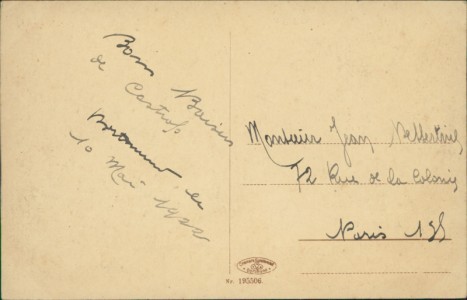 Bons Baisers
de Castrop
le
10 Mai 1922
Monsieur Jean
72 Rue de la Colonie
Paris 13
Nr. 195506.